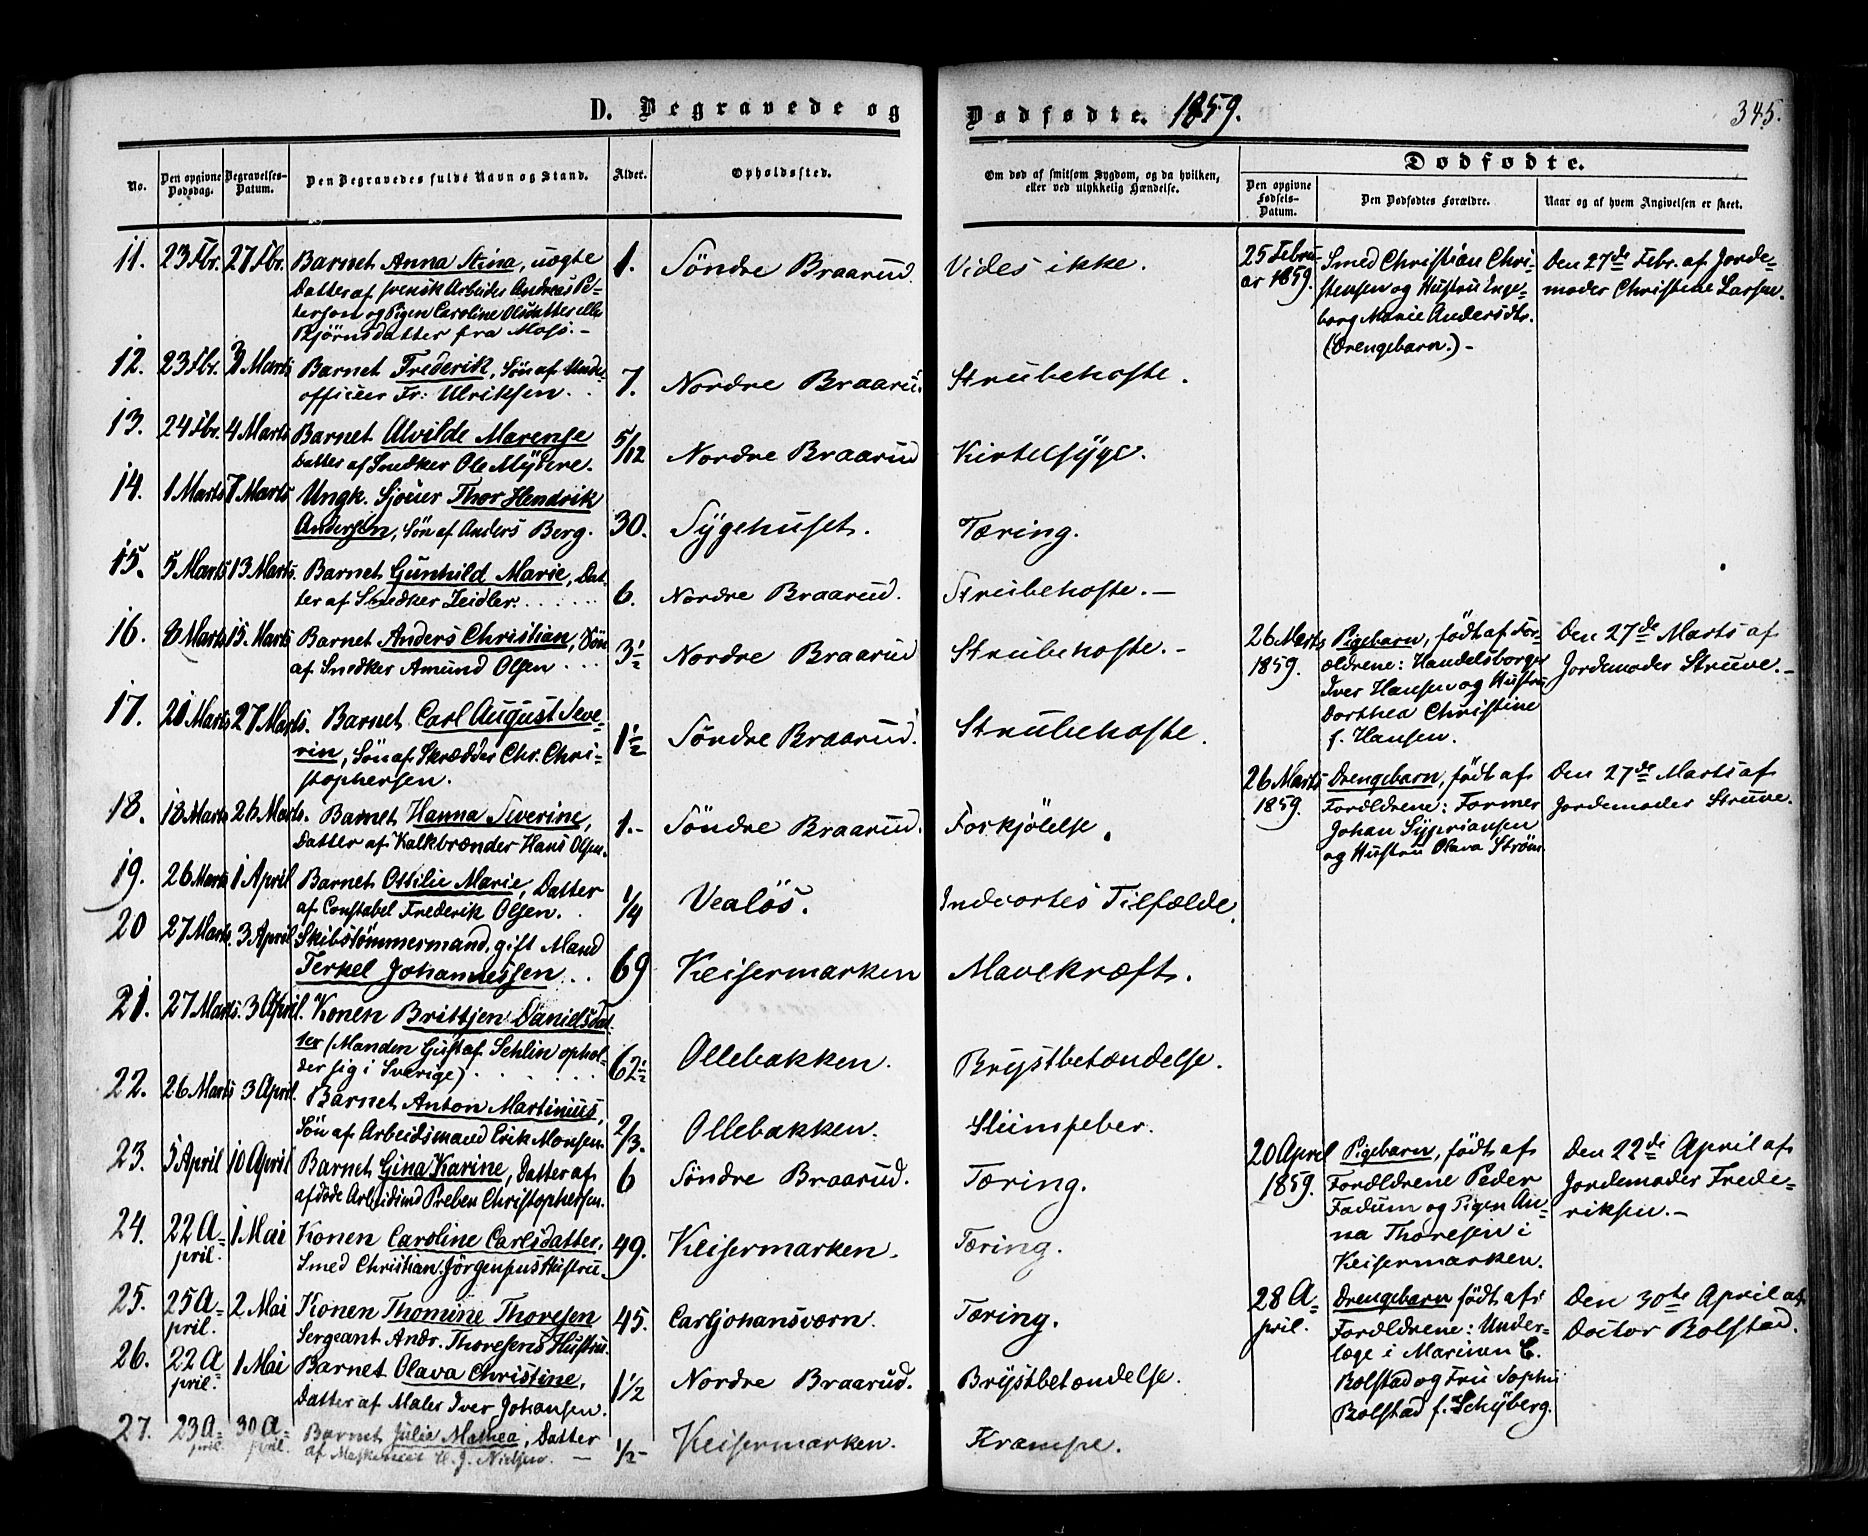 D. Begravede og Dødfødte. 1859. 345.
No. Den opgivne Dødsdag. Begravelses-Datum. Den Begravedes fulde Navn og Stand. Alder. Opholdssted. Om død af smitsom Sygdom, og da hvilken, eller ved ulykkelig Hændelse.
Dødfødte.
Den opgivne Fødsels-Datum. Den Dødfødtes Forældre. Naar og af hvem Angivelsen er skeet.
11. 23 Fbr. 27 Fbr. Barnet Anna Stina, uægte 1. Söndre Braarud. Vides ikke.
Datter af svensk Arbeider Andreas Pe-
terson og Pigen Caroline Olsdatter eller
Björnsdatter fra Moss. -
12. 23 Fbr. 3 Marts Barnet Frederik, Søn af Under- 7. Nordre Braarud. Strubehoste.
officier Fr: Ulriksen.
13. 24 Fbr. 4 Marts Barnet Alvilde Marense 5/12 Nordre Braarud Kirtelsyge.
Datter af Snedker Ole Myhre.
14. 1 Marts 7 Marts Ungk. Sjouer Thor Hendrik
Andersen, Søn af Anders Berg. 30. Sygehuset. Tæring.
15. 5 Marts 13 Marts. Barnet Gunhild Marie, Dat-
ter af Snedker Zeidler. 6. Nordre Braarud. Strubehoste. -
16. 8 Marts 15. Marts Barnet Anders Christian, Søn
af Snedker Amund Olsen 3 1/2 Nordre Braarud Strubehoste. -
17. 21 Marts 27 Marts. Barnet Carl August Seve-
rin, Søn af Skrædder Chr. Chri- 1 1/2 Söndre Braarud. Strubehoste.
stophersen.
18. 18 Marts 26 Marts. Barnet Hanna Severine, 1.- Söndre Braarud. Forkjölelse.
Datter af Kalkbrænder Hans Olsen.
19. 26 Marts 1 April Barnet Ottilie Marie, Datter
af Constabel Frederik Olsen. 1/4 Vealös. Indvortes Tilfælde.
20 27 Marts. 3 April Skibstömmermand, gift Mand
Terkel Johannessen 69 Keisermarken Mavekræft.
21. 27 Marts. 3 April. Konen Brittjen Danielsdat-
ter (Manden Gustaf Sehlin ophol- 62 1/2 Ollebakken. Brystbetændelse.
der sig i Sverige)
22. 26 Marts 3 April. Barnet Anton Martinius,
Søn af Arbeidsmand Erik Monsen. 2/3. Ollebakken. Sliimfeber.
23. 5 April 10 April Barnet Gina Karine, Datter af 6 Söndre Braarud. Tæring.
afdöde Arbeidsmd Preben Christophersen.
24. 22 A-pril. 1 Mai Konen Caroline Carlsdatter, 49. Keisermarken. Tæring.
Smed Christian Jörgensens Hustru.
25. 25 A-pril. 2 Mai Konen Thomine Thoresen 45. Carljohansværn. Tæring.
Sergeant Andr. Thoresens Hustru.
26. 22 A-pril. 1 Mai Barnet Olava Christine, 1 1/2 Nordre Braarud. Brystbetændelse.
Datter af Maler Iver Johansen.
27. 23 A-pril. 30 A-pril. Barnet Julie Mathea, Datter 1/2 - Keisermarken. Krampe.
af H. J. Nielsen. -
25 Febru-ar 1859. Smed Christian Chri- Den 27de Febr. af Jorde-
stensen og Hustru Inge- moder Christine Larsen.
borg Marie Andersdtr.
(Drengebarn.) -
26 Marts 1859. Pigebarn, født af For- Den 27de Marts af
ældrene: Handelsborger Jordemoder Struve. -
Iver Hansen og Hustru
Dorthea Christine
f. Hansen.
26 Marts 1859. Drengebarn, født af Den 27de Marts af
Forældrene: Former Jordemoder Struve.
Johan Sypriansen
og Hustru Olava Ström
20 April 1859. Pigebarn, født af Den 22de April af
Forældrene Peder Jordemoder Frede-
Fadum og Pigen An- riksen. -
na Thoresen i
Keisermarken.
28 A-pril. Drengebarn født af Den 30te April af
Forældrene: Under- Doctor Bolstad.
læge i Marinen C.
Bolstad og Fru Sophie
Bolstad f. Schyberg.